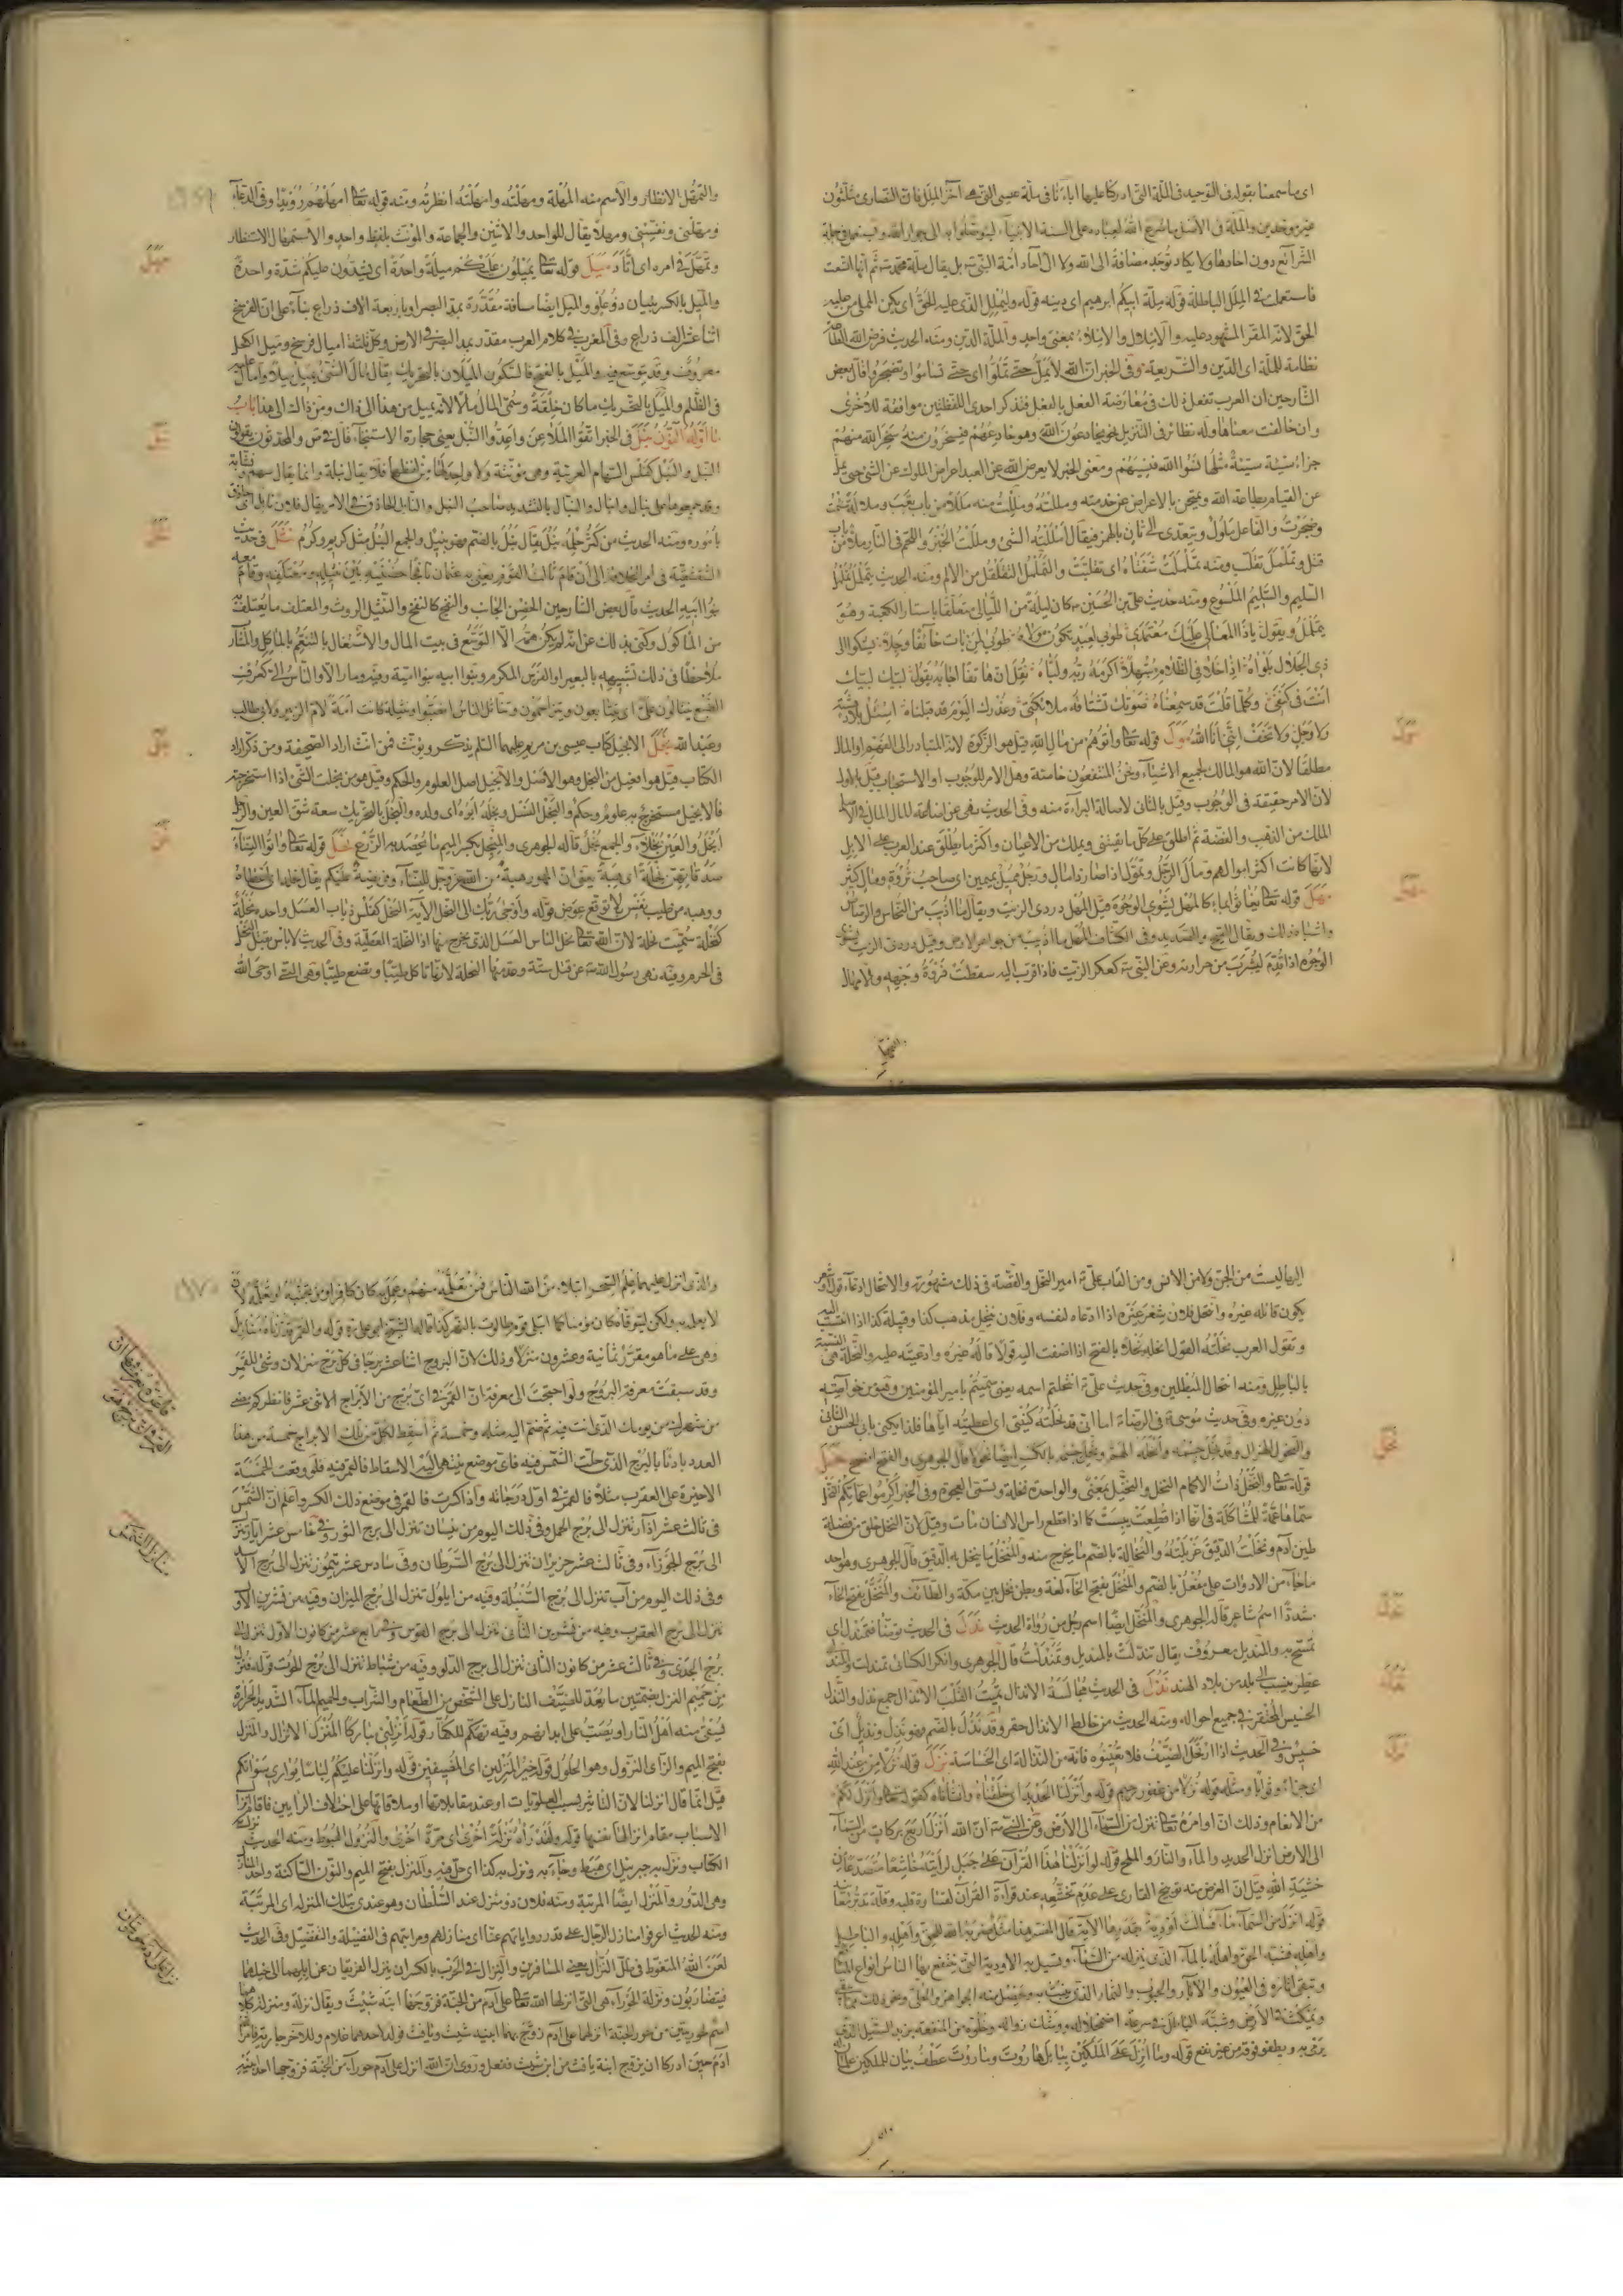 اى ما سمعنا بقوله فى التوحيد فى الملة التى ادركنا عليها اباءنا فى ملة عيسى التى هى آخر الملل فان النصارى مثلثون
غير موحدين والملة فى الاصل ما شرع الله لعباده على السنة الانبياء ليتوصلوا به الى جوار الله ويستعمل فى جملة
الشرائع دون احادها ولا يكاد توجد مضافة الى الله ولا الى آحاد امة النبى بل يقال ملة محمد ثم انها اتسعت
فاستعملت فى الملل الباطلة قوله ملة ابيكم ابرهيم اى دينه قوله وليملل الذى عليه الحق اى يكن المملى من عليه
الحق لانه المقر المشهود عليه والاملال والاملاء بمعنى واحد والملة الدين ومنه الحديث فرض الله الطاعة
نظاما للملة اى الدين والشريعة وفى الخبر ان الله لا يمل حتى تملوا اى حتى تساموا وتضجروا قال بعض
الشارحين ان العرب تفعل ذلك فى معارضة الفعل بالفعل فتذكر احدى اللفظتين موافقة للاخرى
وان خالفت معناها وله نظائر فى التنزيل نحو يخادعون الله وهو خادعهم فيسخرون منهم سخر الله منهم
جزاء سيئة سيئة مثلها نسوا الله فنسيهم ومعنى الخبر لا يعرض الله عن العبد اعراض الملوك عن الشئ حتى يمل
عن القيام بطاعة الله ويمتحن بالاعراض عن خدمته ومللته ومللت منه مللا من باب تعب وملالة سئمت
وضجرت والفاعل ملول ويتعدى الى ثان بالهمز فيقال امللته الشئ ومللت الخبز واللحم فى النار ملا من باب
قتل وتململ تقلب ومنه تململت شفتاه اى تقلبت والتململ التقلقل من الالم ومنه الحديث يتململ تململ
السليم والسليم الملسوع ومنه حديث على بن الحسين كان ليلة من الليالى متعلقا باستار الكعبة وهو
يتململ ويقول يا ذا المعالى عليك معتمدى طوبى لعبد تكون مولاه طوبى لمن بات خائفا وجلا يشكو الى
ذى الجلال بلواه اذا خلا فى الظلام مبتهلا اكرمه ربه ولباه نقل ان هاتفا اجابه يقول لبيك لبيك
انت فى كنفى وكلما قلت قد سمعناه صوتك تشتاقه ملائكتى وعذرك اليوم قد قبلناه اسئل بلا دهشة
ولا وجل ولا تخف انى انا الله مول قوله تعا واتوهم من مال الله قيل هو الزكوة لانه المتبادر الى الفهم او المال
مطلقا لان الله هو المالك لجميع الاشياء ونحن المنتفعون خاصة وهل الامر للوجوب او الاستحباب قيل بالاول
لان الامر حقيقة فى الوجوب وقيل بالثانى لاصالة البراءة منه وفى الحديث نهى عن اضاعة المال المال فى الاصل
الملك من الذهب والفضة ثم اطلق على كل ما يقتنى ويملك من الاعيان واكثر ما يطلق عند العرب على الابل
لانها كانت اكثر اموالهم ومال الرجل وتمول اذا صار ذا مال ورجل مميل بميمين اى صاحب ثروة ومال كثير
مهل قوله تعا يغاثوا بماء كالمهل يشوى الوجوه قيل المهل دردى الزيت ويقال ما اذيب من النحاس والرصاص
واشباه ذلك ويقال القيح والصديد وفى الكشاف المهل ما اذيب من جواهر الارض وقيل دردى الزيت يشوى
الوجوه اذا قدم ليشرب من حرارته وعن النبى كعكر الزيت فاذا قرب اليه سقطت فروة وجهه والامهال
مول
مهل
والتمهل الانظار والاسم منه المهلة ومهلته وامهلته انظرته ومنه قوله تعا امهلهم رويدا وفى الدعاء
ومهلنى ونفسنى ومهلا يقال للواحد والاثنين والجماعة والمؤنث بلفظ واحد والاستمهال الاستنظار
وتمهل فى امره اى اتاد ميل قوله تعا يميلون عليكم ميلة واحدة اى يشدون عليكم شدة واحدة
والميل بالكسر بنيان ذو علو والميل ايضا مسافة مقدرة بمد البصر او باربعة الاف ذراع بناء على ان الفرسخ
اثنا عشر الف ذراع وفى المغرب فى كلام العرب مقدر بمد البصر فى الارض وكل ثلثة اميال فرسخ وميل الكحل
معروف وقد توسع فيه والميل بالفتح فالسكون الميلان بالتحريك يقال مال الشئ يميل ميلا وامال عليه
فى الظلم والميل بالتحريك ما كان خلقة وسمى المال مالا لانه يميل من هذا الى ذاك ومن ذاك الى هذا باب
ما اوله النون نبل فى الخبر اتقوا الملاعن واعدوا النبل يعنى حجارة الاستنجاء قال فى ص والمحدثون يقولون
النبل والنبل كفلس السهام العربية وهى مؤنثة ولا واحد لها من لفظها فلا يقال نبلة وانما يقال سهم ونشابة
وقد جمعوها على نبال وانبال والنبال بالتشديد صاحب النبل والنابل الحاذق فى الامر يقال فلان نابل اى حاذق
بأموره ومنه الحديث من كثر حلمه نبل يقال نبل بالضم فهو نبيل والجمع النبل مثل كريم وكرم نثل فى حديث
الشقشقية فى امر الخلافة الى ان قام ثالث القوم يعنى به عثمان نافجا حضنيه بين نثيله ومعتلفه وقام معه
بنو ابيه الحديث قال بعض الشارحين الحضن الجانب والنفج كالنفخ والنثيل الروث والمعتلف ما يعتلف به
من الماكول وكنى بذلك عن انه لم يكن همه الا التوسع فى بيت المال والاشتغال بالتنعم بالماكل والمشارب
ملاحظا فى ذلك تشبيهه بالبعير او الفرس المكرم وبنوا ابيه بنوا امية وفيه وما راعنى الا والناس الى كعرف
الضبع ينثالون على اى يتتابعون ويتزاحمون وتناثل الناس انصبوا ونثيلة كانت امة لام الزبير وابى طالب
وعبد الله نجل الانجيل كتاب عيسى بن مريم عليهما السلم يذكر ويؤنث فمن انث اراد الصحيفة ومن ذكر اراد
الكتاب قيل هو افعيل من النجل وهو الاصل والانجيل اصل العلوم والحكم وقيل هو من نجلت الشئ اذا استخرجته
فالانجيل مستخرج به علوم وحكم والنجل النسل ونجله ابوه اى ولده والنجل بالتحريك سعة شق العين والرجل
انجل والعين نجلاء والجمع نجل قاله الجوهرى والمنجل بكسر الميم ما يحصد به الزرع نحل قوله تعا واتوا النساء
صدقاتهن نحلة اى هبة يعنى ان المهور هبة من الله عز وجل للنساء وفريضة عليكم يقال نحله اى اعطاه
ووهبه من طيب نفس بلا توقع عوض قوله واوحى ربك الى النحل الاية النحل كفلس ذباب العسل واحده نحلة
كنخلة سميت نحلة لان الله تعا نحل الناس العسل الذى يخرج منها اذ النحلة العطية وفى الحديث لا باس بقتل النحل
فى الحرم وفيه نهى رسول الله عن قتل ستة وعد منها النحلة لانها تاكل طيبا وتضع طيبا وهى التى اوحى الله
ميل
نبل
نثل
نجل
نحل
اليها ليست من الجن ولا من الانس ومن القاب على امير النحل والقصة فى ذلك مشهورة والانتحال ادعاء قول او شعر
يكون قائله غيره وانتحل فلان شعر غيره اذا ادعاه لنفسه وفلان ينتحل مذهب كذا وقبيلة كذا اذا انتسب اليه
وتقول العرب نحلته القول انحله نحلا بالفتح اذا اضفت اليه قولا قاله غيره وادعيته عليه والنحلة هى النسبة
بالباطل ومنه انتحال المبطلين وفى حديث على انتحلتم اسمه يعنى سميتم بامير المؤمنين وهى من خواصه
دون غيره وفى حديث موسى فى الرضا اما انى قد نحلته كنيتى اى اعطيته اياها فلذا يكنى بابى الحسن الثانى
والنحول الهزال وقد نحل جسمه وانحله الهم ونحل جسمه بالكسر ايضا نحولا قال الجوهرى والفتح افصح نخل
قوله تعا والنخل ذات الاكمام النخل والنخيل بمعنى والواحدة نخلة وتسمى العجوة وفى الخبر اكرموا عماتكم النخل
سماها عمة للمشاكلة فى انها اذا قطعت يبست كما اذا قطع راس الانسان مات وقيل لان النخل خلق من فضلة
طين آدم ونخلت الدقيق غربلته والنخالة بالضم ما يخرج منه والمنخل ما ينخل به الدقيق قال الجوهرى وهو احد
ما جاء من الادوات على مفعل بالضم والمنخل بفتح الخاء لغة وبطن نخل بين مكة والطائف والمنخل بفتح الخاء
مشددا اسم شاعر قاله الجوهرى والمنخل ايضا اسم رجل من رواة الحديث ندل فى الحديث توضا فتمندل اى
تمسح به والمنديل معروف يقال تندلت بالمنديل وتمندلت قال الجوهرى وانكر الكسائى تمندلت والمندلى
عطر ينسب الى بلد من بلاد الهند نذل فى الحديث مجالسة الانذال تميت القلب الانذال جمع نذل والنذل
الخسيس المحتقر فى جميع احواله ومنه الحديث من خالط الانذال حقر وقد نذل بالضم فهو نذل ونذيل اى
خسيس وفى الحديث اذا ارتحل الضيف فلا تعينوه فانه من النذالة اى الخساسة نزل قوله نزلا من عند الله
اى جزاء وثوابا ومثله قوله نزلا من غفور رحيم قوله وانزلنا الحديد اى خلقناه وانشأناه كقوله تعا وانزل لكم
من الانعام وذلك ان اوامره تعا تنزل من السماء الى الارض وعن النبى ان الله انزل اربع بركات من السماء
الى الارض انزل الحديد والماء والنار والملح قوله لو انزلنا هذا القرآن على جبل لرايته خاشعا متصدعا من
خشية الله قيل ان الغرض منه توبيخ القارى على عدم تخشعه عند قراءة القرآن لقساوة قلبه وقلة تدبر معانيه
قوله انزل من السماء ماء فسالت اودية بقدرها الاية قال المفسر هذا مثل ضربه الله للحق واهله والباطل
واهله فشبه الحق واهله بالماء الذى ينزله من السماء فتسيل به الاودية التى ينتفع بها الناس انواع المنافع
وتبقى اثاره فى العيون والآبار والحبوب والثمار الذى ينبت به
ويمكث فى الارض وشبه الباطل فى سرعة اضمحلاله ووشك زواله وخلوه من المنفعة بزبد السيل الذى
يرمى به ويطفو فوقه من غير نفع قوله وما انزل على الملكين ببابل هاروت وماروت عطف بيان للملكين
نخل
ندل
نذل
نزل
والذى انزل عليهما علم السحر ابتلاء من الله للناس فمن تعلمه منهم وعمل به كان كافرا ومن تجنبه او تعلمه لان
لا يعمل به ولكن ليتوقاه كان مؤمنا كما ابتلى قوم طالوت بالنهر كذا قاله الشيخ ابو على قوله والقمر قدرناه منازل
وهى على ما هو مقرر ثمانية وعشرون منزلا وذلك لان البروج اثنا عشر برجا فى كل برج منزلان وشئ للقمر
وقد سبقت معرفة البروج ولو احتجت الى معرفة ان القمر فى اى برج من الابراج الاثنى عشر فانظر كم مضى
من شهرك من يومك الذى انت فيه ثم ضم اليه مثله وخمسة ثم اسقط لكل من تلك الابراج خمسة من هذا
العدد بادئا بالبرج الذى حلت الشمس فيه فاى موضع ينتهى اليه الاسقاط فالقمر فيه فلو وقعت الخمسة
الاخيرة على العقرب مثلا فالقمر فى اول درجاته واذا كسرت فالقمر فى موضع ذلك الكسر واعلم ان الشمس
فى ثالث عشر آذار تنزل الى برج الحمل وفى ذلك اليوم من نيسان تنزل الى برج الثور وفى خامس عشر ايار تنزل
الى برج الجوزاء وفى ثالث عشر حزيران تنزل الى برج السرطان وفى سادس عشر تموز تنزل الى برج الاسد
وفى ذلك اليوم من آب تنزل الى برج السنبلة وفيه من ايلول تنزل الى برج الميزان وفيه من تشرين الاول
تنزل الى برج العقرب وفيه من تشرين الثانى تنزل الى برج القوس وفى رابع عشر من كانون الاول تنزل الى
برج الجدى وفى ثالث عشر من كانون الثانى تنزل الى برج الدلو وفيه من شباط تنزل الى برج الحوت قوله فنزل
من حميم النزل بضمتين ما يعد للضيف النازل على الشخص من الطعام والشراب والحميم الماء الشديد الحرارة
يسقى منه اهل النار او يصب على ابدانهم وفيه تهكم للكفار قوله انزلنى منزلا مباركا المنزل الانزال والمنزل
بفتح الميم والزاى النزول وهو الحلول قوله خير المنزلين اى المضيفين قوله وانزلنا عليكم لباسا يوارى سوآتكم
قيل انما قال انزلنا لان التاثير بسبب العلويات او عند مقابلاتها او ملاقاتها على اختلاف الرايين فاقام انزال
الاسباب مقام انزالها نفسها قوله ولقد رآه نزلة اخرى اى مرة اخرى والنزول الهبوط ومنه الحديث
الكتاب ونزل به جبرئيل اى هبط وجاء به ونزل به كذا اى حل فيه والمنزل بفتح الميم والنون الساكنة واحد المنازل
وهى الدور والمنزل ايضا المرتبة ومنه فلان ذو منزل عند السلطان وهو عندى بتلك المنزلة اى المرتبة
ومنه الحديث اعرفوا منازل الرجال على قدر رواياتهم عنا اى منازلهم ومراتبهم فى الفضيلة والتفضيل وفى الحديث
لعن الله المتغوط فى ظل النزال يعنى المسافرين والنزال فى الحرب بالكسر ان ينزل الفريقان عن ابلهما الى خيلهما
فيتضاربون ونزلة الحوراء هى التى انزلها الله تعا على آدم من الجنة فزوجها ابنه شيث ويقال نزلة ومنزلة كلاهما
اسم لحوريتين من حور الجنة انزلهما على آدم زوج بهما ابنيه شيث ويافث فولد لاحدهما غلام وللآخر جارية فامر
آدم حين ادركا ان يزوج ابنة يافث من ابن شيث ففعل وروى ان الله انزل على آدم حوراء من الجنة فزوجها احد ابنيه
منازل الشمس